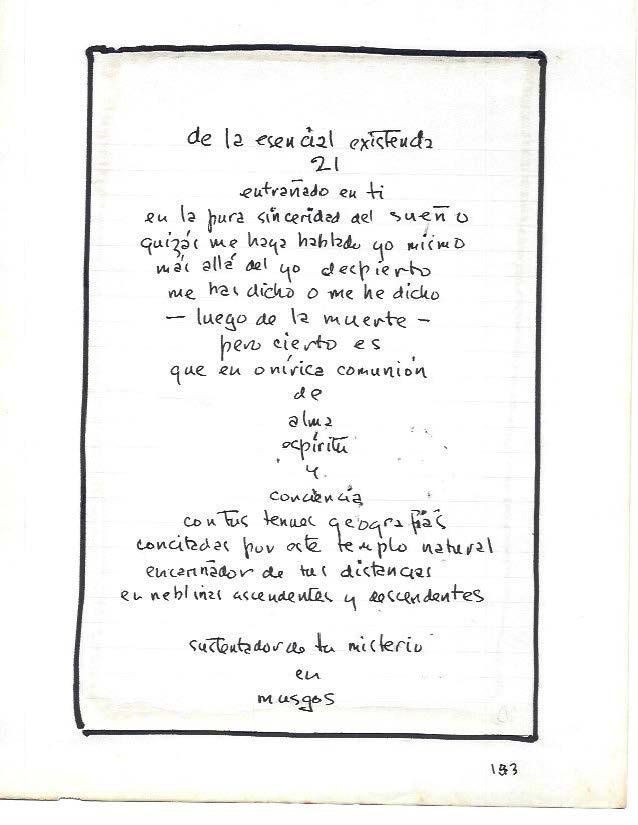 de la esencial existencia
21
entrañado en ti
en la pura sinceridad del sueño
quizás me haya hablado yo mismo
más allá del yo despierto
me has dicho o me he dicho
— luego de la muerte —
pero cierto es
que en onírica comunión
de
alma
espíritu
y
conciencia
con tus tenues geografías
concitadas por este templo natural
encarinador de tus distancias
en neblinas ascendentes y descendentes
sustentador de tu misterio
en
musgos
153